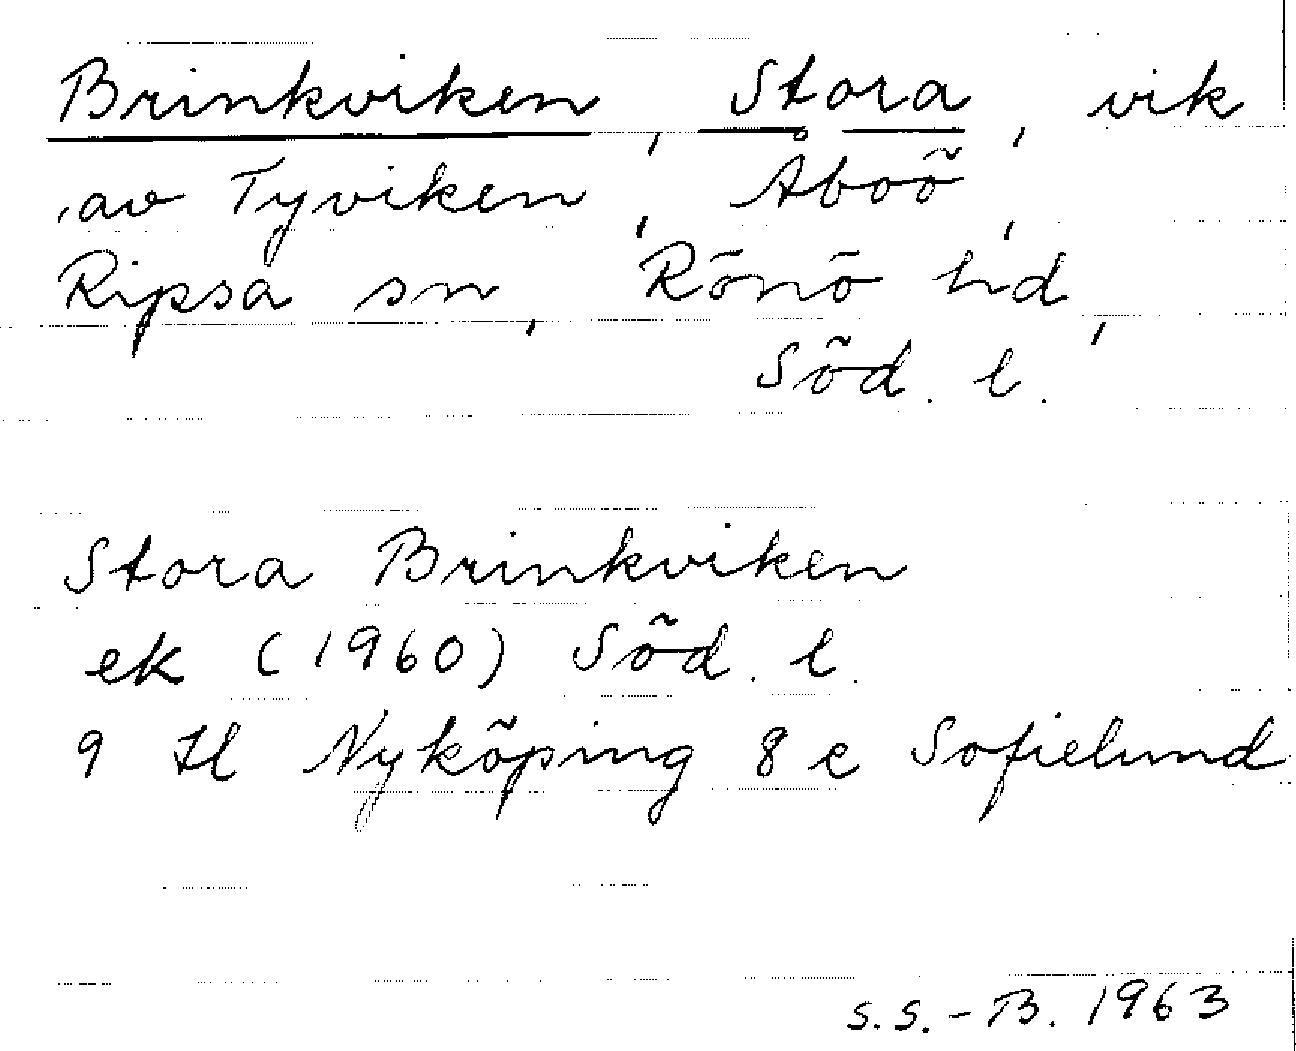 Brinkviken, Stora, vik
av Tyviken, Åboö,
Ripsa sn, Rönö hd,
Söd. l.
Stora Brinkviken
ek (1960) Söd. l.
9 H Nyköping 8 e Sofielund
S.S.-B. 1963